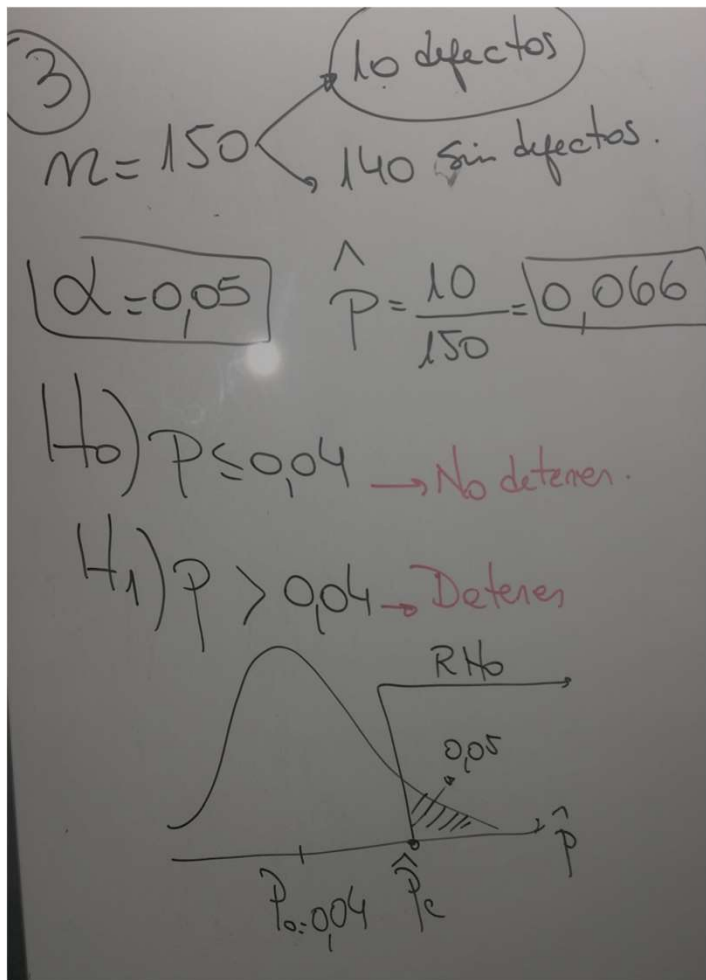 3
10 defectos
n = 150
140 sin defectos.
α = 0,05
p̂ = 10/150 = 0,066
H₀) P ≤ 0,04 → No detener.
H₁) P > 0,04 → Detener
RH₀
0,05
p̂
P₀=0,04
p̂c